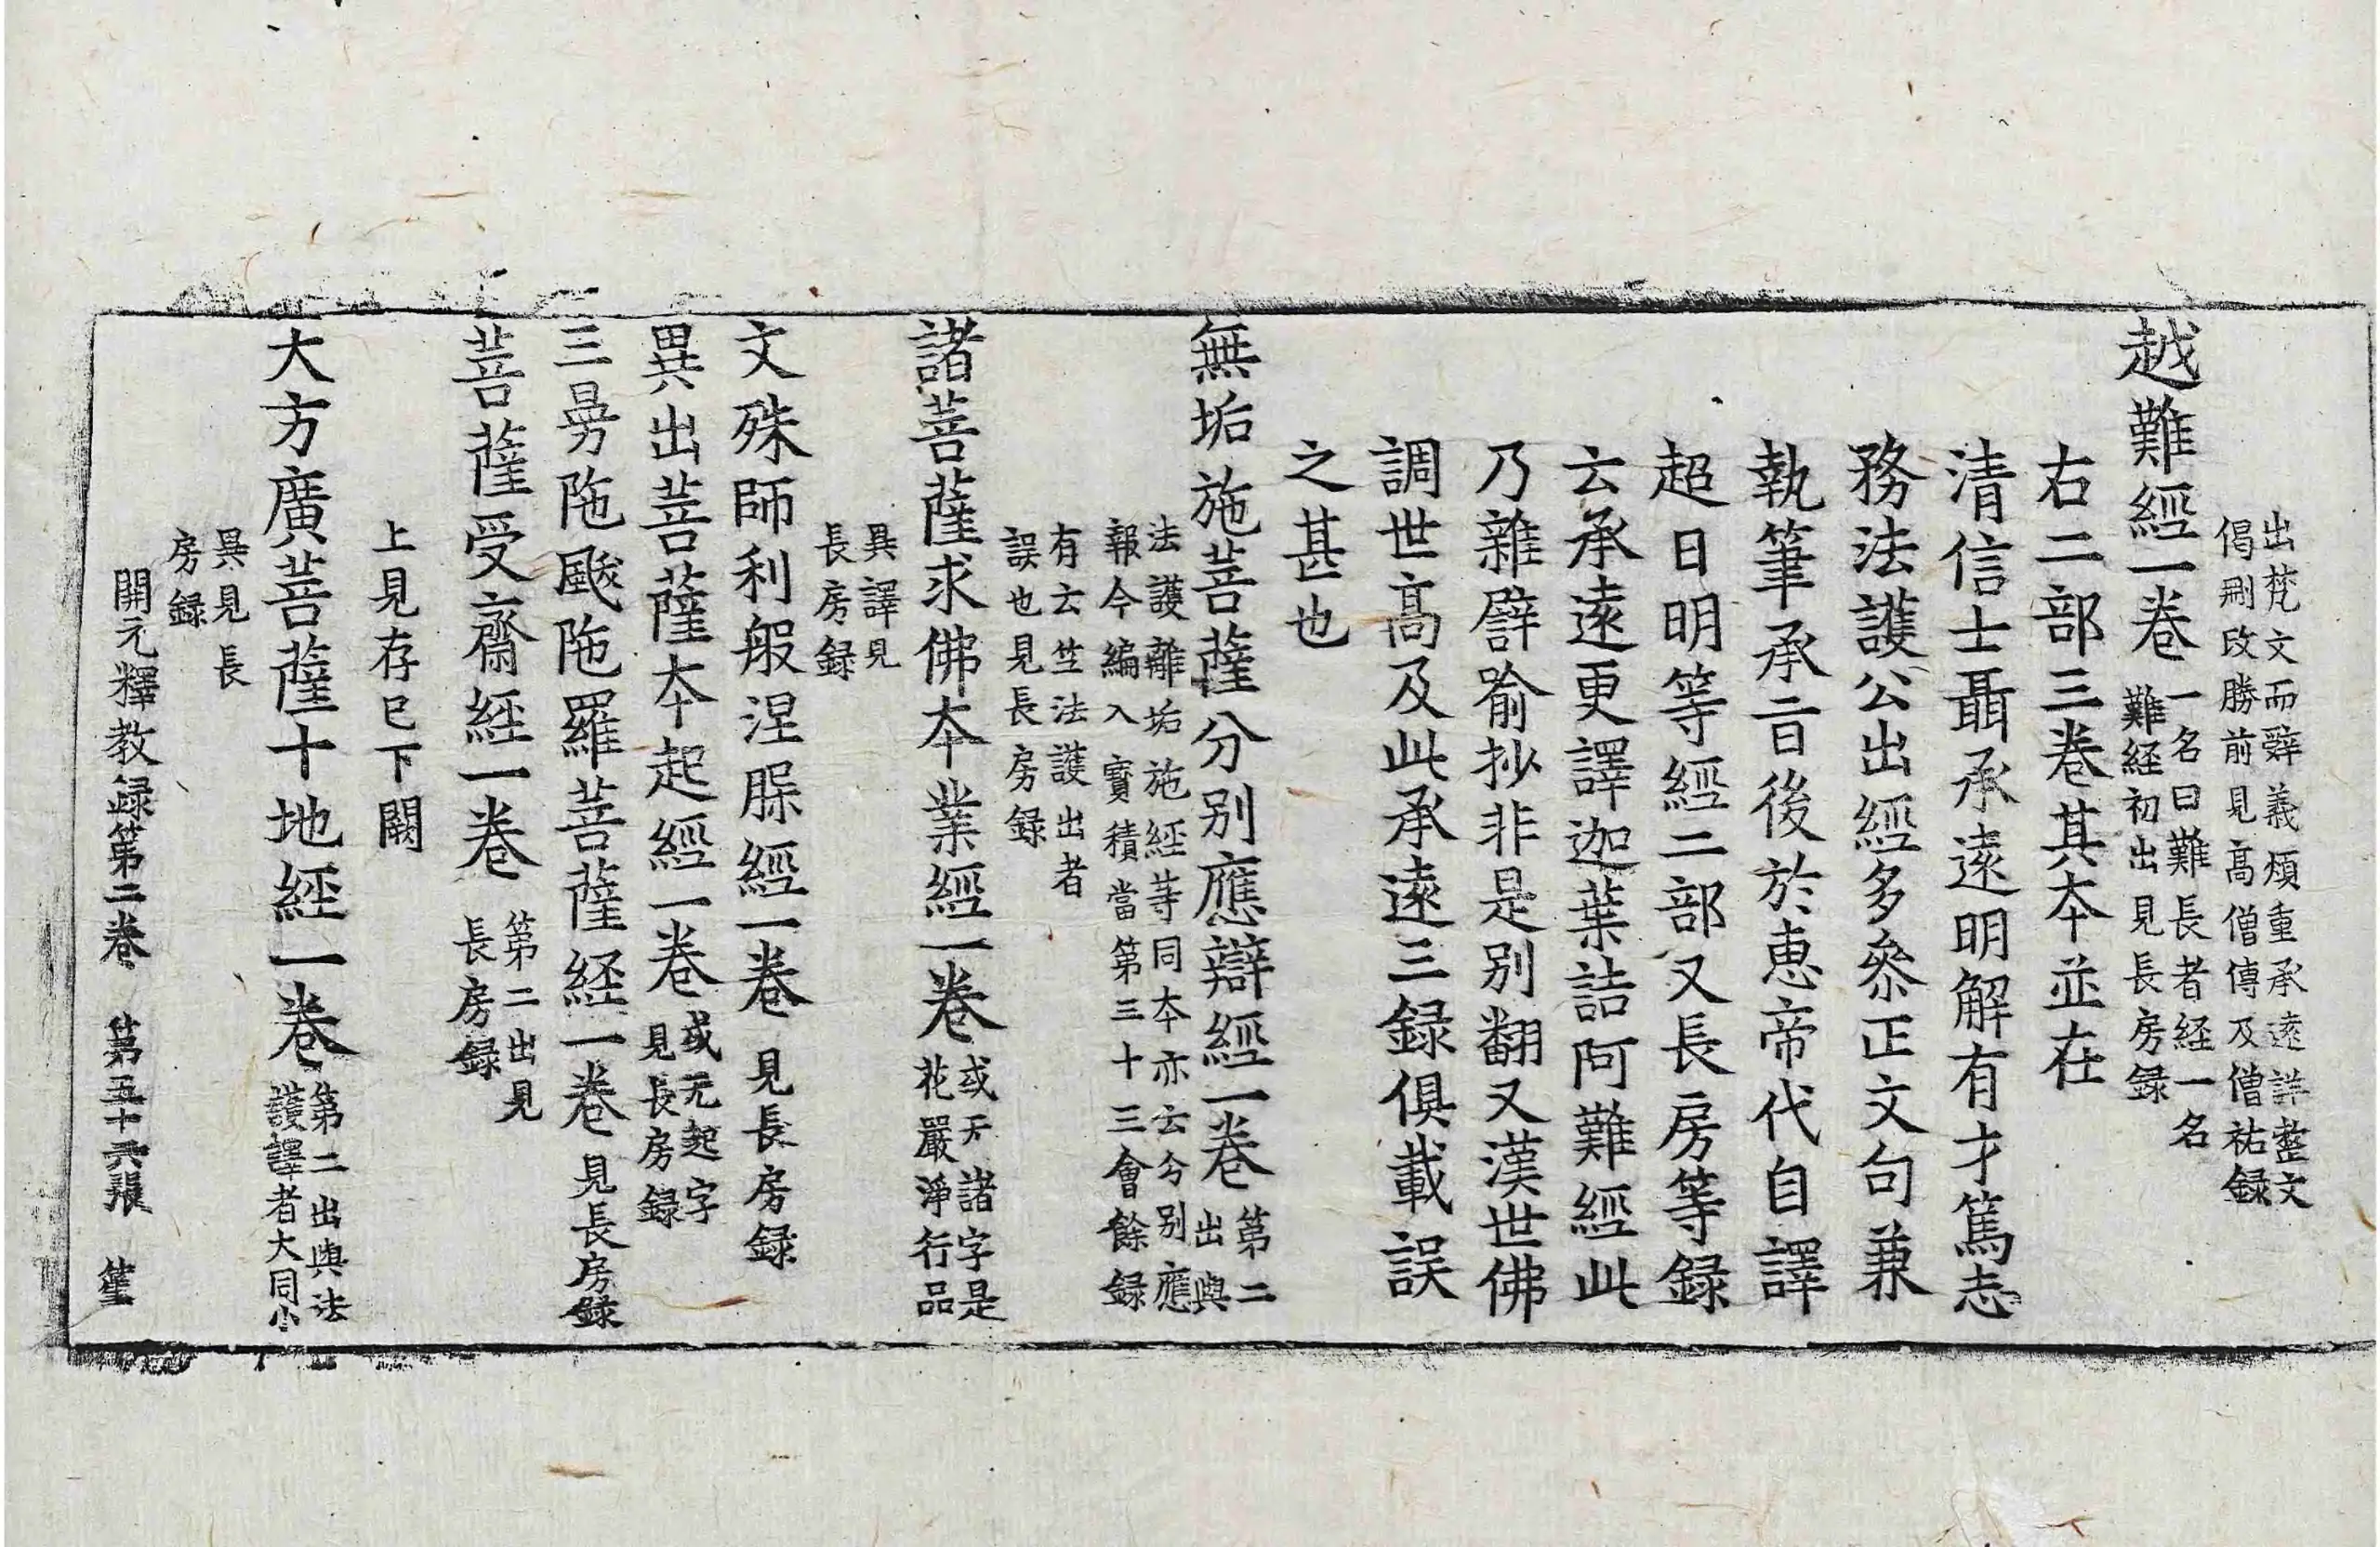 出梵文而辭義煩重承遠詳整文
偈刪改勝前見高僧傳及僧祐録
越難經一卷
一名曰難長者経一名
難経初出見長房録
右二部三巻其夲並在
清信士聶承遠明解有才篤志
務法護公出經多叅正文句兼
執筆承旨後於恵帝代自譯
超日明等經二部又長房等録
云承遠更譯迦葉詰阿難經此
乃雜譬喻抄非是别翻又漢世佛
調世髙及此承遠三録俱載誤
之甚也
無垢施菩薩分别應辯經一卷
第二
出與
法護離垢施経等同夲亦云分別應
報今編入寶積當第三十三會餘録
有云竺法護出者
誤也見長房録
諸菩薩求佛夲業經一卷
或无諸字是
花嚴淨行品
異譯見
長房録
文殊師利般涅洹經一卷 見長房録
異出菩薩夲起經一卷
或无起字
見長房録
三曼陁颰陁羅菩薩経一卷 見長房録
菩薩受齋経一卷
第二出見
長房録
上見存已下闕
大方廣菩薩十地経一卷
第二出與法
護譯者大同小
異見長
房録
開元釋教録第二卷 第五十六張 笙